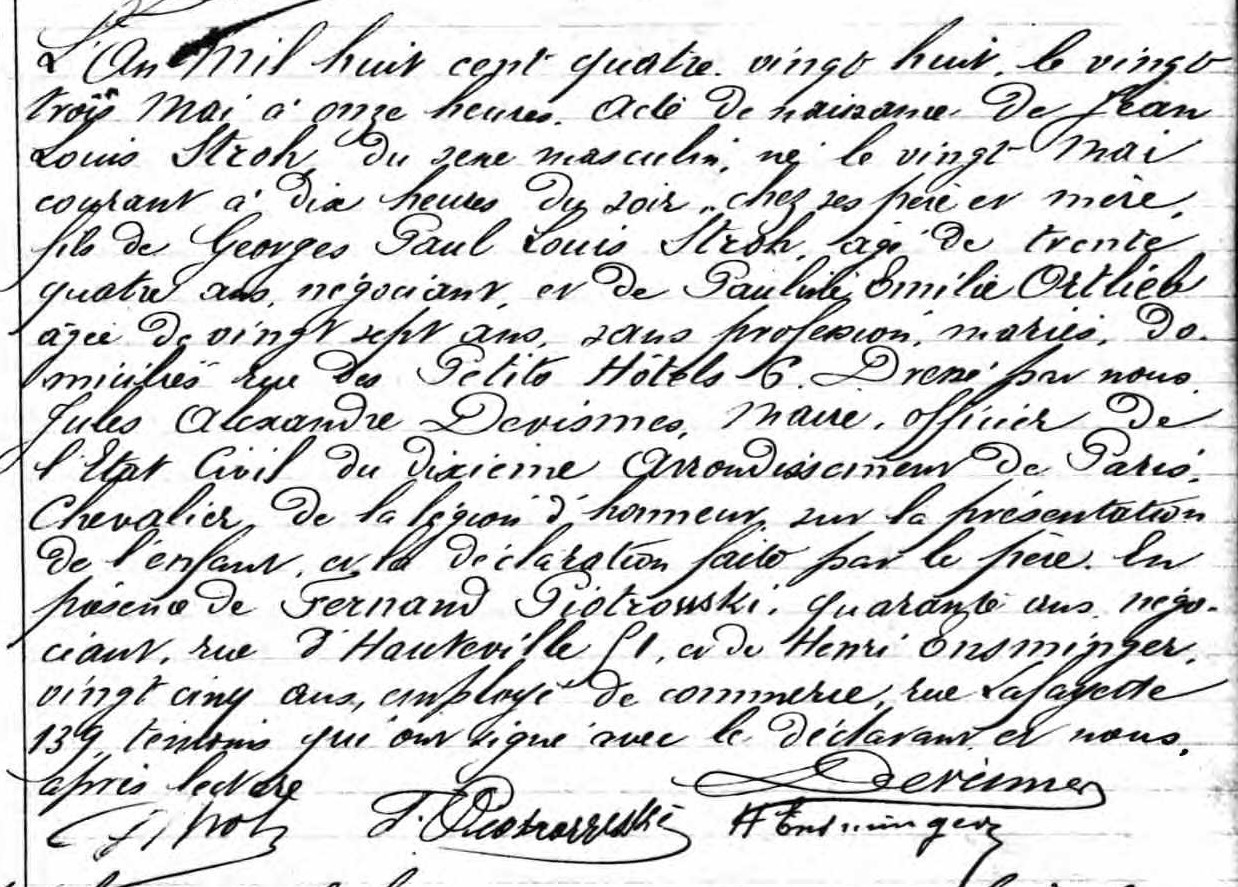 L'An Mil huit cent quatre vingt huit, le vingt
trois Mai à onze heures. Acte de naissance de Jean
Louis Stroh, du sexe masculin, né le vingt Mai
courant à dix heures du soir, chez ses père et mère,
fils de Georges Paul Louis Stroh, âgé de trente
quatre ans, négociant, et de Pauline Emilie Ortlieb
âgée de vingt sept ans, sans profession, mariés, do-
miciliés rue des Petits Hôtels 6. Dressé par nous
Jules Alexandre Devismes, Maire, officier de
l'Etat Civil du dixième Arrondissement de Paris,
Chevalier de la légion d'honneur, sur la présentation
de l'enfant, et la déclaration faite par le père. En
présence de Fernand Piotrowski, quarante ans, négo-
ciant, rue d'Hauteville 51, et de Henri Ensminger,
vingt cinq ans, employé de commerce, rue Lafayette
139, témoins qui ont signé avec le déclarant et nous,
après lecture
Devismes
Stroh F. Piotrowski H Ensminger